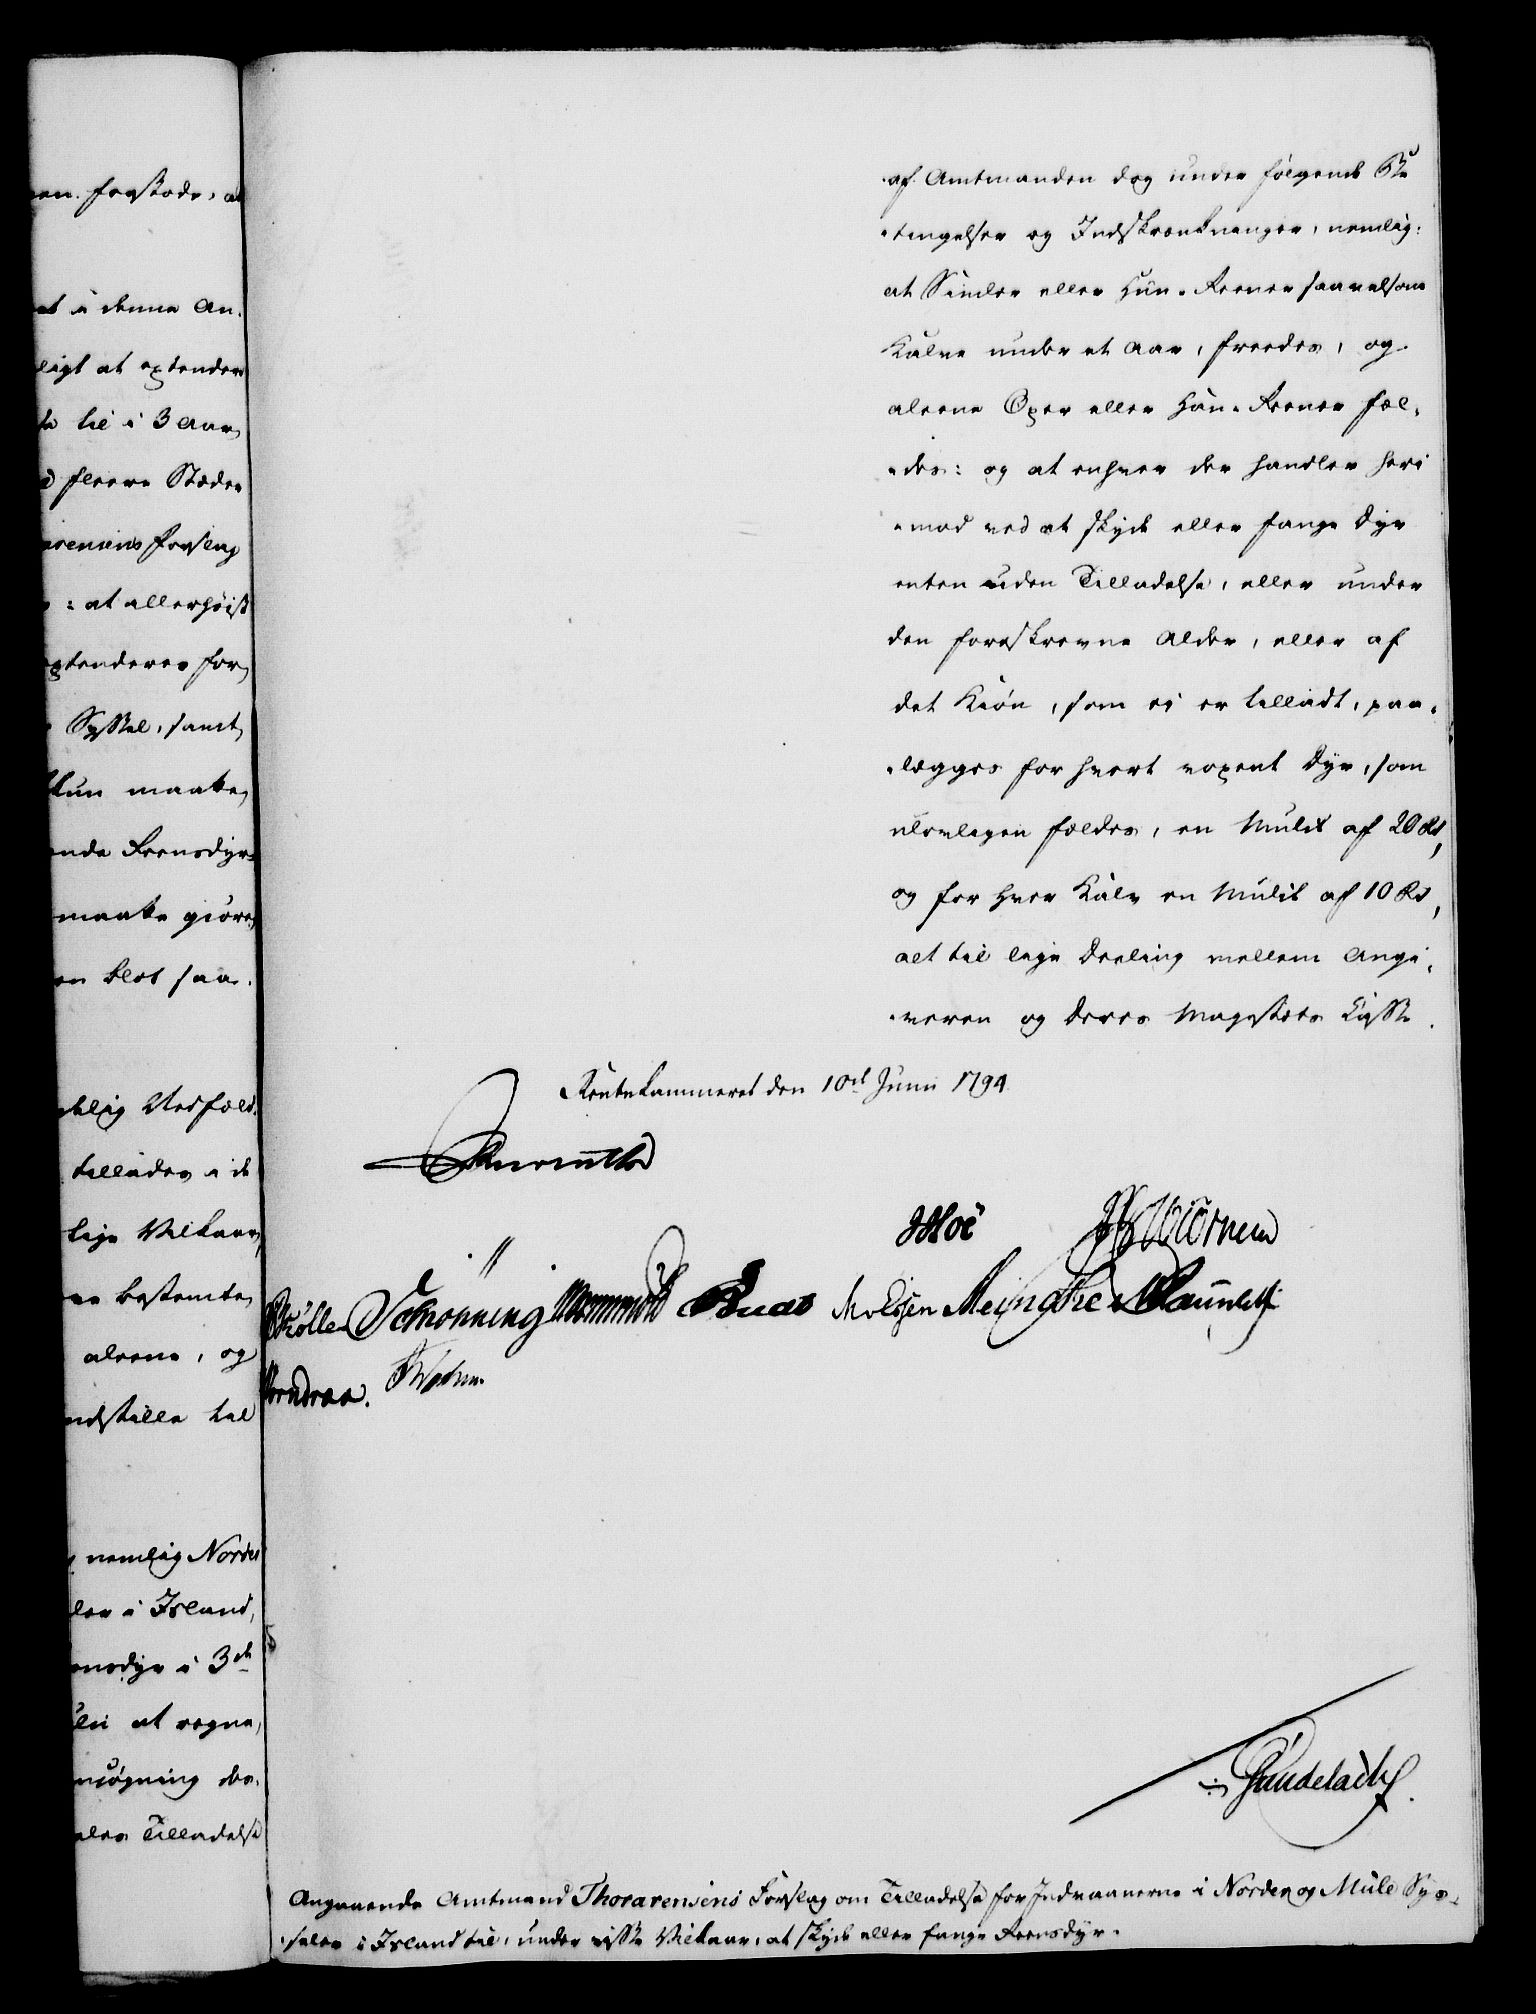 en. forstode, at
et i denne An¬
ligt at extendere
te til i 3 Aar,
d fleere Stæder
arensens Forslag
: at allerhøist
extenderes for
Syssel, samt
kun maatte
ende Reensdyr
maatte giøres
en blot saa¬
Nedfæld¬
tillades i de
lige Vilkaar,
bestemte,
aleene, og
indstille til
nemlig Norder
ler i Island,
ensdyr i 3de
Juli at regne,
nsøgning des¬
ales Tilladelse
af Amtmanden dog under følgende Be
tingelser og Indskrænkninger, nemlig:
at Simler eller Hun-Reener saavelsom
Kalve under et Aar, freedes, og
aleene Oxer eller Han-Reener fæl¬
des: og at enhver der handler heri
mod ved at skyde eller fange Dyr
enten uden Tilladelse, eller under
den foreskrevne Alder, eller af
det Kiøn, som ei er tilladt, paa¬
lægges for hvert voxent Dyr, som
ulovligen fældes, en Mulct af 20 Rd,
og for hver Kalv en Mulct af 10 Rd,
alt til lige Deeling mellem Angi¬
veren og Deres Majestæts Casse.
Rentekammeret den 10de Junii 1794
JHoë
Schønning Wormskiold Buas Molsen Meinche
Wedum
Gundelach
Angaaende Amtmand Thorarensens Forslag om Tilladelse for Indvaanerne i Norder og Mule Sys¬
seler i Island til, under visse Vilkaar, at skyde eller fange Reensdyr.